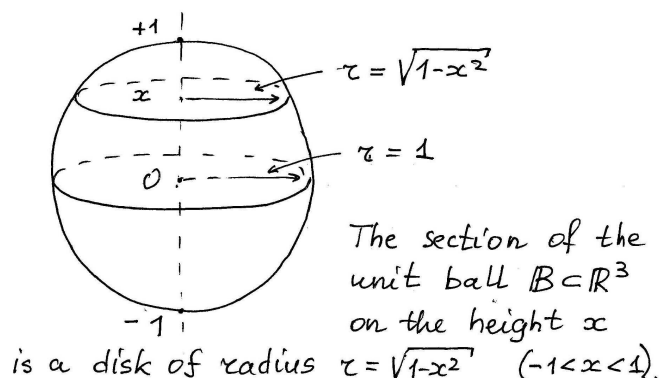 +1
x
r = √(1-x²)
0
r = 1
-1
The section of the
unit ball 𝔹 ⊂ ℝ³
on the height x
is a disk of radius r = √(1-x²) (-1<x<1).